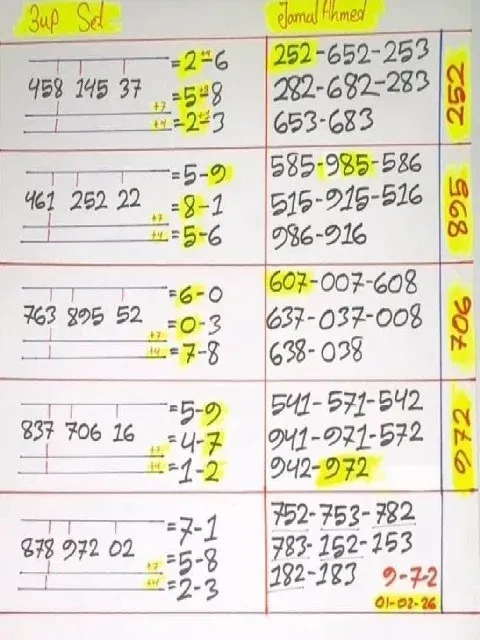 3up Set
Jamal Ahmed
458 145 37
=2+4-6
=5+3-8
+7
=2+1-3
+4
252-652-253
282-682-283
653-683
252
461 252 22
=5-9
=8-1
+7
=5-6
+4
585-985-586
515-915-516
986-916
895
763 895 52
=6-0
=0-3
+7
=7-8
+4
607-007-608
637-037-008
638-038
706
837 706 16
=5-9
=4-7
+7
=1-2
+4
541-571-542
941-971-572
942-972
972
878 972 02
=7-1
=5-8
+7
=2-3
+4
752-753-782
783-152-153
182-183
9-7-2
01-02-26